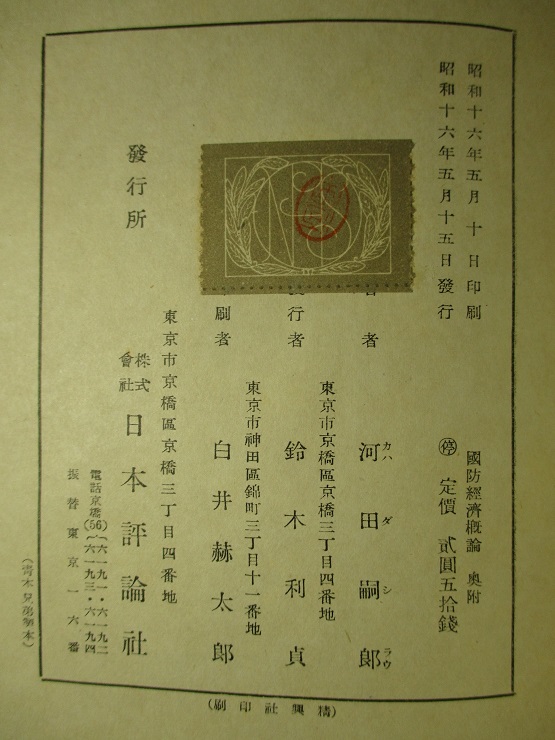 昭和十六年五月 十 日印刷
昭和十六年五月十五日發行
國防經濟概論 奥附
停 定價 貳圓五拾錢
者 河田嗣郎
カハ ダ シ ラウ
東京市京橋區京橋三丁目四番地
行者 鈴木利貞
東京市神田區錦町三丁目十一番地
刷者 白井赫太郎
東京市京橋區京橋三丁目四番地
發行所 株式會社 日本評論社
電話京橋(56){六一九一・六一九二 六一九三・六一九四
振替東京一六番
(青木兄弟製本)
(精興社印刷)